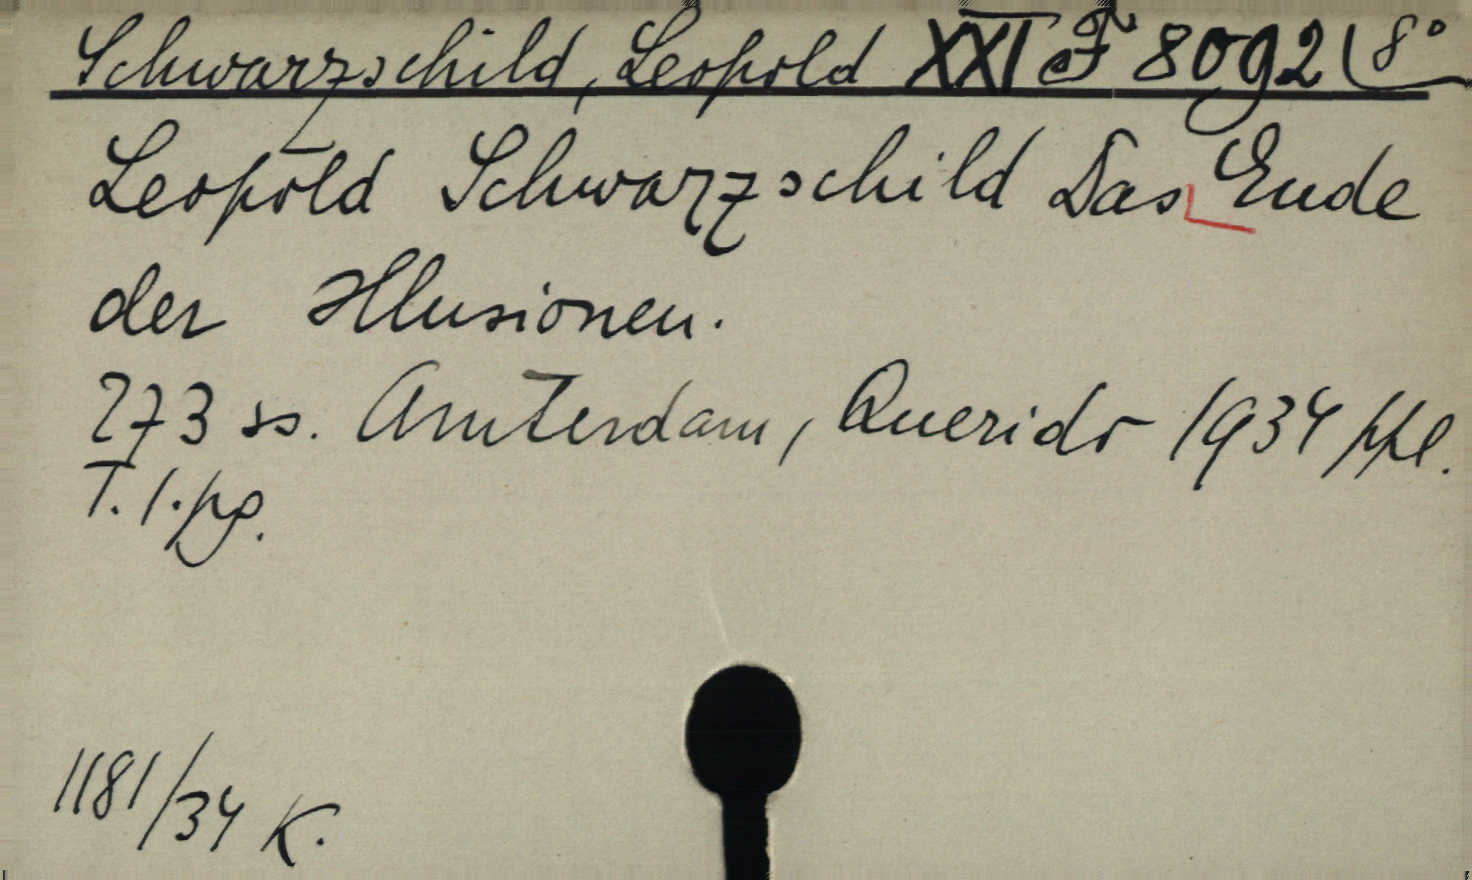 Schwarzschild, Leopold XXI F 8092 8°
Leopold Schwarzschild Das Ende
der Illusionen.
273 ss. Amterdam, Querido 1934 ppl.
T. 1. pg.
1181/34 K.